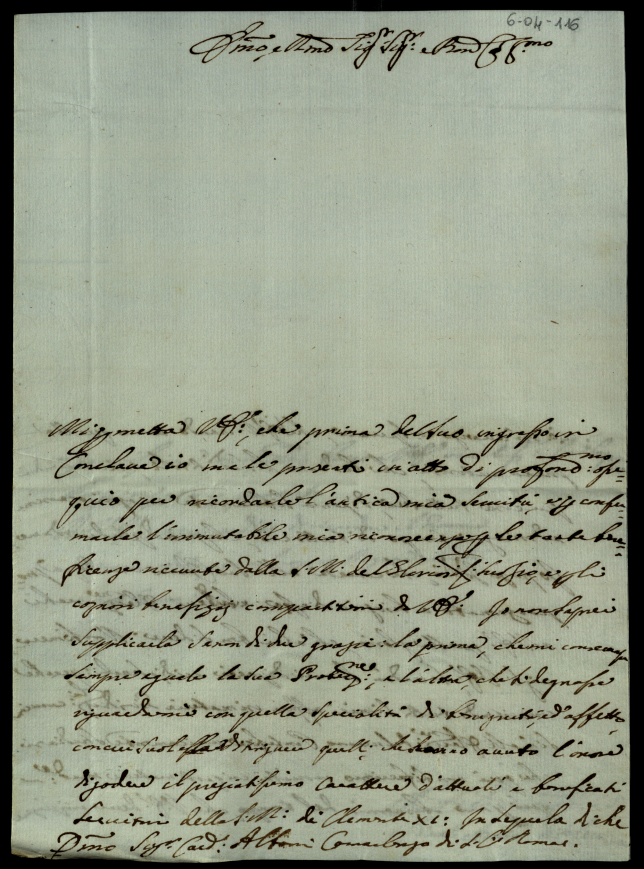 6-04-116
Emo, e Rmo Sigr Sigr: e Pron Colmo
Mi permetta V.E., che prima del suo ingresso in
Conclave io me le presenti in atto di profond:mo osse=
quio per ricordarle l'antica mia servitù, e per confer=
marle l'inmutabile mia riconoscenza per le tante bene=
ficenze ricevute dalla S.M: del e per li
copiosi benefizj compartitimi da V.E. Io non saprei
supplicarla se non di due grazie: la prima, che mi conservi
sempre eguale la sua Protezne, e l'altra, che si degnasse
riguardarmi con quella specialità di benignità, e d'affetto,
con cui suol distinguere quelli, che hanno avuto l'onore
di godere il pregiatissimo carattere d'attuali e beneficati
Servitori della S.M: di Clemente XI: In sequela di che
Emo Sigr Card: Albani Camerlengo di S. Ca Romae.